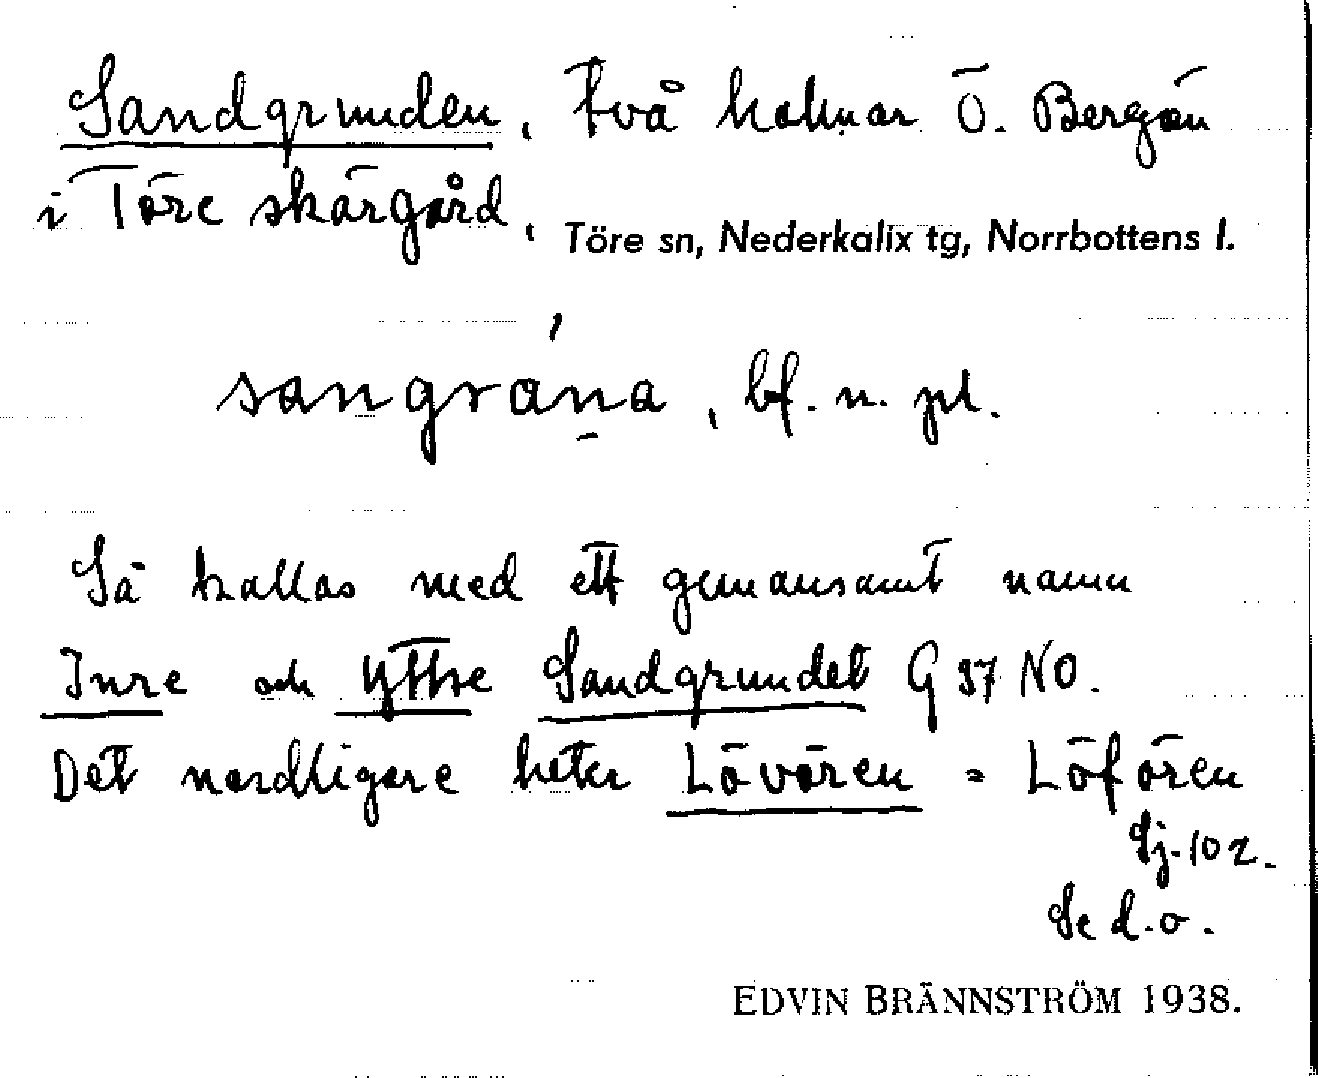 Sandgrunden, två holmar Ö. Bergön
i Töre skärgård, Töre sn, Nederkalix tg, Norrbottens l.
sangráṇa, bf. n. pl.
Så kallas med ett gemensamt namn
Inre och Yttre Sandgrundet G 37 NO.
Det nordligare heter Lövören = Löfören
Sj. 102.
Se d.o.
EDVIN BRÄNNSTRÖM 1938.